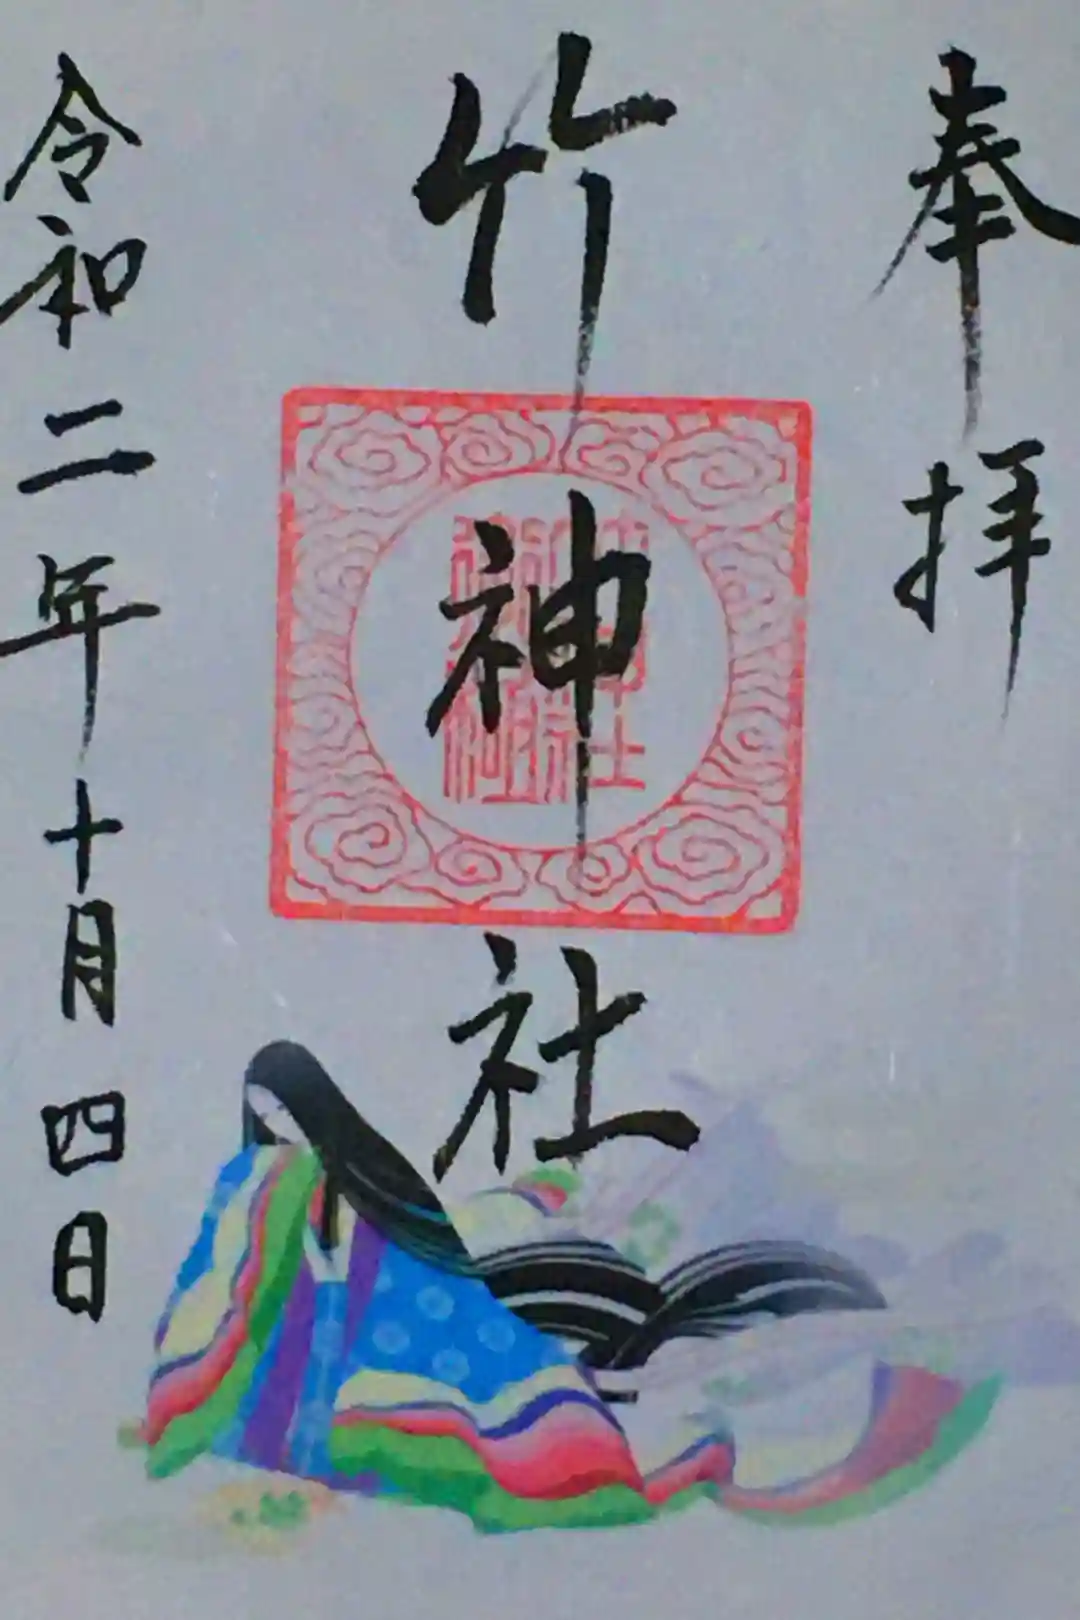 奉拝
竹神社
令和二年十月四日